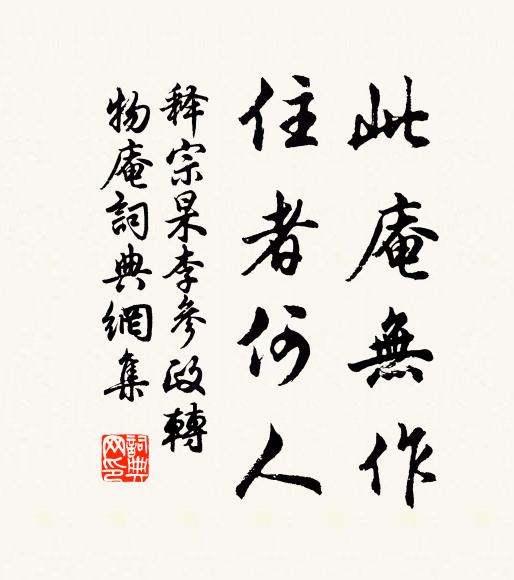 此庵無作
住者何人
释宗杲李參政轉
物庵詞典網集
詞典网印